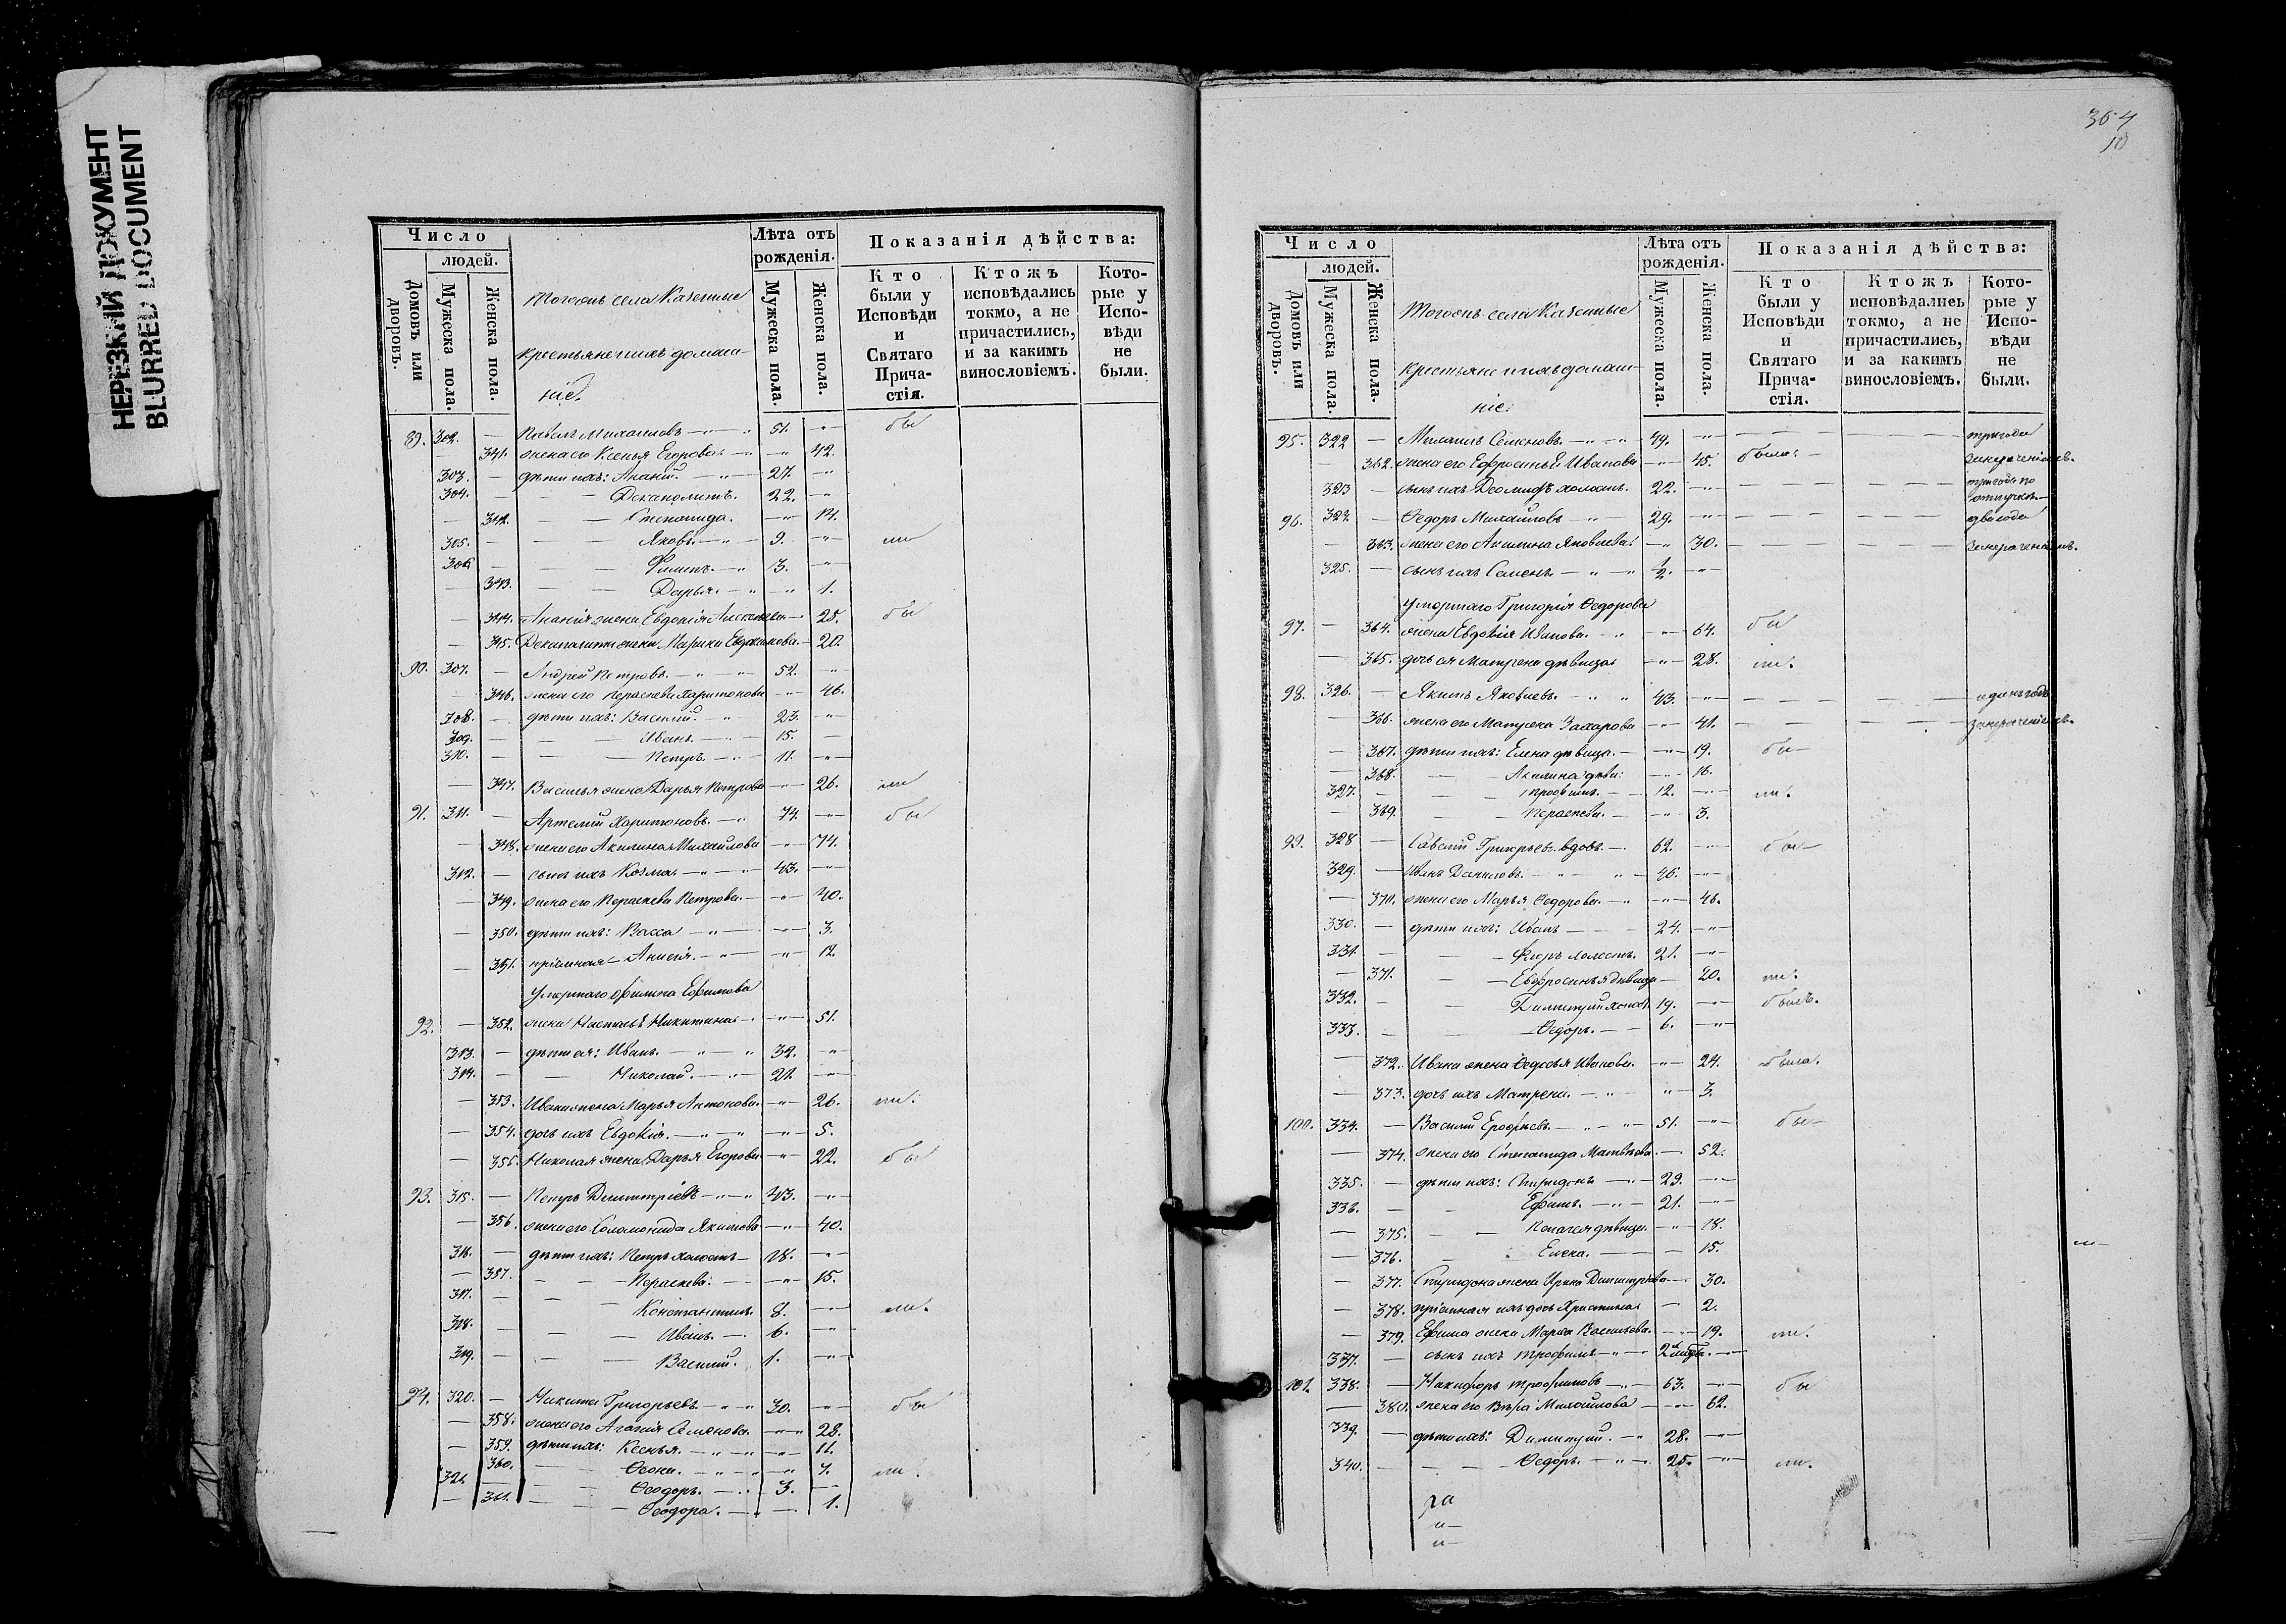 НЕРЕЗКИЙ ДОКУМЕНТ
BLURRED DOCUMENT
Число
людей.
Домовъ или дворовъ.
Мужеска пола.
Женска пола.
Тогожъ села Казенные
крестьяне и ихъ домаш-
ніе.
Лѣта отъ рожденія.
Мужеска пола.
Женска пола.
Показанія дѣйства:
Кто были у Исповѣди и Святаго Прича-стія.
Ктожъ исповѣдались токмо, а не причастились, и за какимъ винословіемъ.
Кото-рые у Испо-вѣди не были.
89. 302. — Михаиловъ 51. бы
341. жена его Ксенья Егорова 42.
303. — дѣти ихъ: Ананій. 27.
304. — Декаполитъ. 22.
342. Степанида. 14.
305. Яковъ. 9. ли
306 Филипъ. 3.
343. Дарья. 1.
344. Ананія жена Евдокія 25. бы
345. Декаполита жена Марина Евдокимова 20.
90. 307. — Андрей Петровъ. 52.
346. жена его Параскева Харитонова 46.
308. — дѣти ихъ: Василій. 23.
309. — Иванъ. 15.
310. — Петръ. 11.
347. Василья жена Дарья Петрова 26. ли
91. 311. — Артемій Харитоновъ. 74. бы
348. жена его Акилина Михайлова 74.
312. — сынъ ихъ Козма. 43.
349. жена его Параскева Петрова 40.
350. дѣти ихъ: Васса 3.
351. пріемная Анисія. 12.
Умершаго Филипа Ефимова
92. — 352. жена Настасья Никитина 51.
313. — дѣти ея: Иванъ. 32.
314. — Николай. 21.
353. Ивана жена Марья Антонова. 26. ли.
354. дочь ихъ Евдокія. 5.
355. Николая жена Дарья Егорова 22. бы
93. 315. — Петръ Димитріевъ 43.
356. жена его Соломонида Якимова 40.
316. — дѣти ихъ: Петръ холостъ 18.
357. Параскева. 15.
317. Константинъ. 8. ли.
318. Иванъ. 6.
319. Василій. 1.
94. 320. — Никита Григорьевъ. 30. бы
358. жена его Агафія Семенова. 28.
359. дѣти ихъ: Ксенья. 11.
360. 7. ли.
321. Ѳеодоръ. 3.
361. Ѳеодора. 1.
364
10
Число
людей.
Домовъ или дворовъ.
Мужеска пола.
Женска пола.
Тогожъ села Казенные
крестьяне и ихъ домаш-
ніе.
Лѣта отъ рожденія.
Мужеска пола.
Женска пола.
Показанія дѣйства:
Кто были у Исповѣди и Святаго Прича-стія.
Ктожъ исповѣдались токмо, а не причастились, и за какимъ винословіемъ.
Кото-рые у Испо-вѣди не были.
95. 322 — Семеновъ. 49. три года
362. жена его Ефросинья Иванова 45. была.
323 — сынъ ихъ холостъ. 22. три года по
96. 324. — Ѳедоръ Михайловъ 29. два года
363. жена его Акилина Яковлева 30.
325. — сынъ ихъ Семенъ. ½.
Умершаго Григорія Ѳедорова
97. — 364. жена Евдокія Иванова. 64. бы
365. дочь ея Матрена дѣвица 28. ли.
98. 326. — Якимъ Яковлевъ. 43. одинъ годъ
366. жена его Матрена Захарова 41.
367. дѣти ихъ: Елена дѣвица. 19. бы
368. Акилина дѣви: 16.
327. Трофимъ. 12. ли.
369. Параскева. 3.
99. 328 — Савелій Григорьевъ вдовъ. 62. бы
329. — Иванъ Даниловъ. 46.
370. жена его Марья Ѳедорова. 46.
330. — дѣти ихъ: Иванъ 24.
331. — Егоръ холостъ. 21.
371. Евфросинья дѣвица 20. ли.
332. Димитрий холост. 19. былъ.
333. Ѳедоръ. 6.
372. Ивана жена Ѳедосья Иванова. 24. была.
373. дочь ихъ Матрена. 3.
100. 334. — Василій Ерофѣевъ. 51. бы
374. жена его Степанида Матвѣева 52.
335. — дѣти ихъ: Спиридонъ 29.
336. — Ефимъ. 21.
375. Пелагея дѣвица. 18.
376. Елена. 15.
377. Спиридона жена Ирина Димитріева 30.
378. пріемная ихъ дочь Христина 2.
379. Ефима жена Марѳа Васильева. 19. ли.
337. — сынъ ихъ Трофимъ
101. 338. — Никифоръ Трофимовъ 63. бы
380. жена его Вѣра Михайлова 62.
339. — дѣти ихъ: Димитрий. 28.
340. — Ѳедоръ. 25. ли.